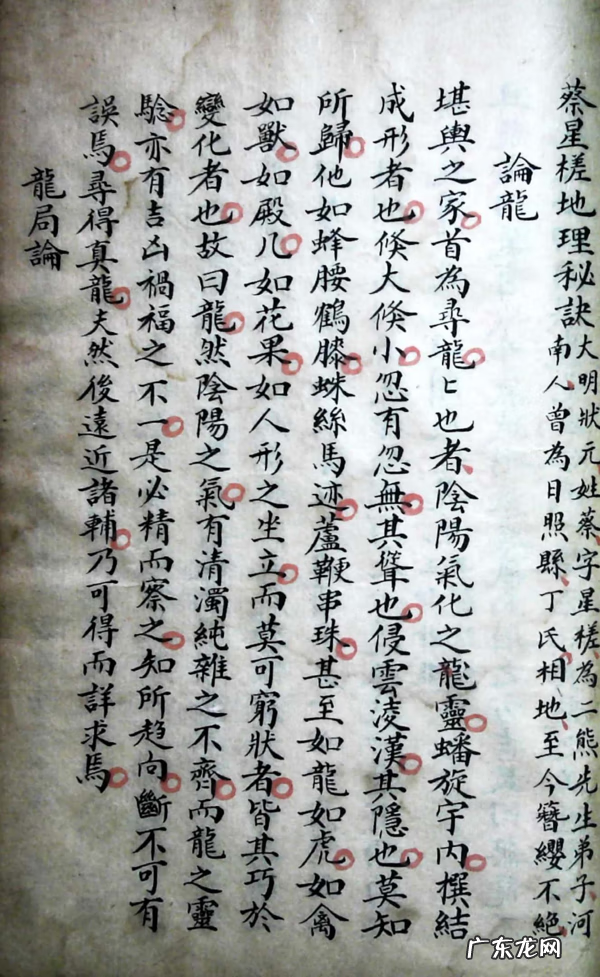 蔡星槎地理秘訣大明狀元姓蔡字星槎為二熊先生弟子河
南人曾為日照縣丁氏相地至今簪纓不絕
論龍
堪輿之家首為尋龍〻也者陰陽氣化之龍靈蟠旋宇內撰結
成形者也倏大倏小忽有忽無其聳也侵雲淩漢其隱也莫知
所歸他如蜂腰鶴膝蛛絲馬迹蘆鞭串珠甚至如龍如虎如禽
如獸如殿几如花果如人形之坐立而莫可窮狀者皆其巧於
變化者也故曰龍然陰陽之氣有清濁純雜之不齊而龍之靈
騐亦有吉凶禍福之不一是必精而察之知所趋向斷不可有
誤焉尋得真龍夫然後遠近諸輔乃可得而詳求焉
龍局論
广东龙网